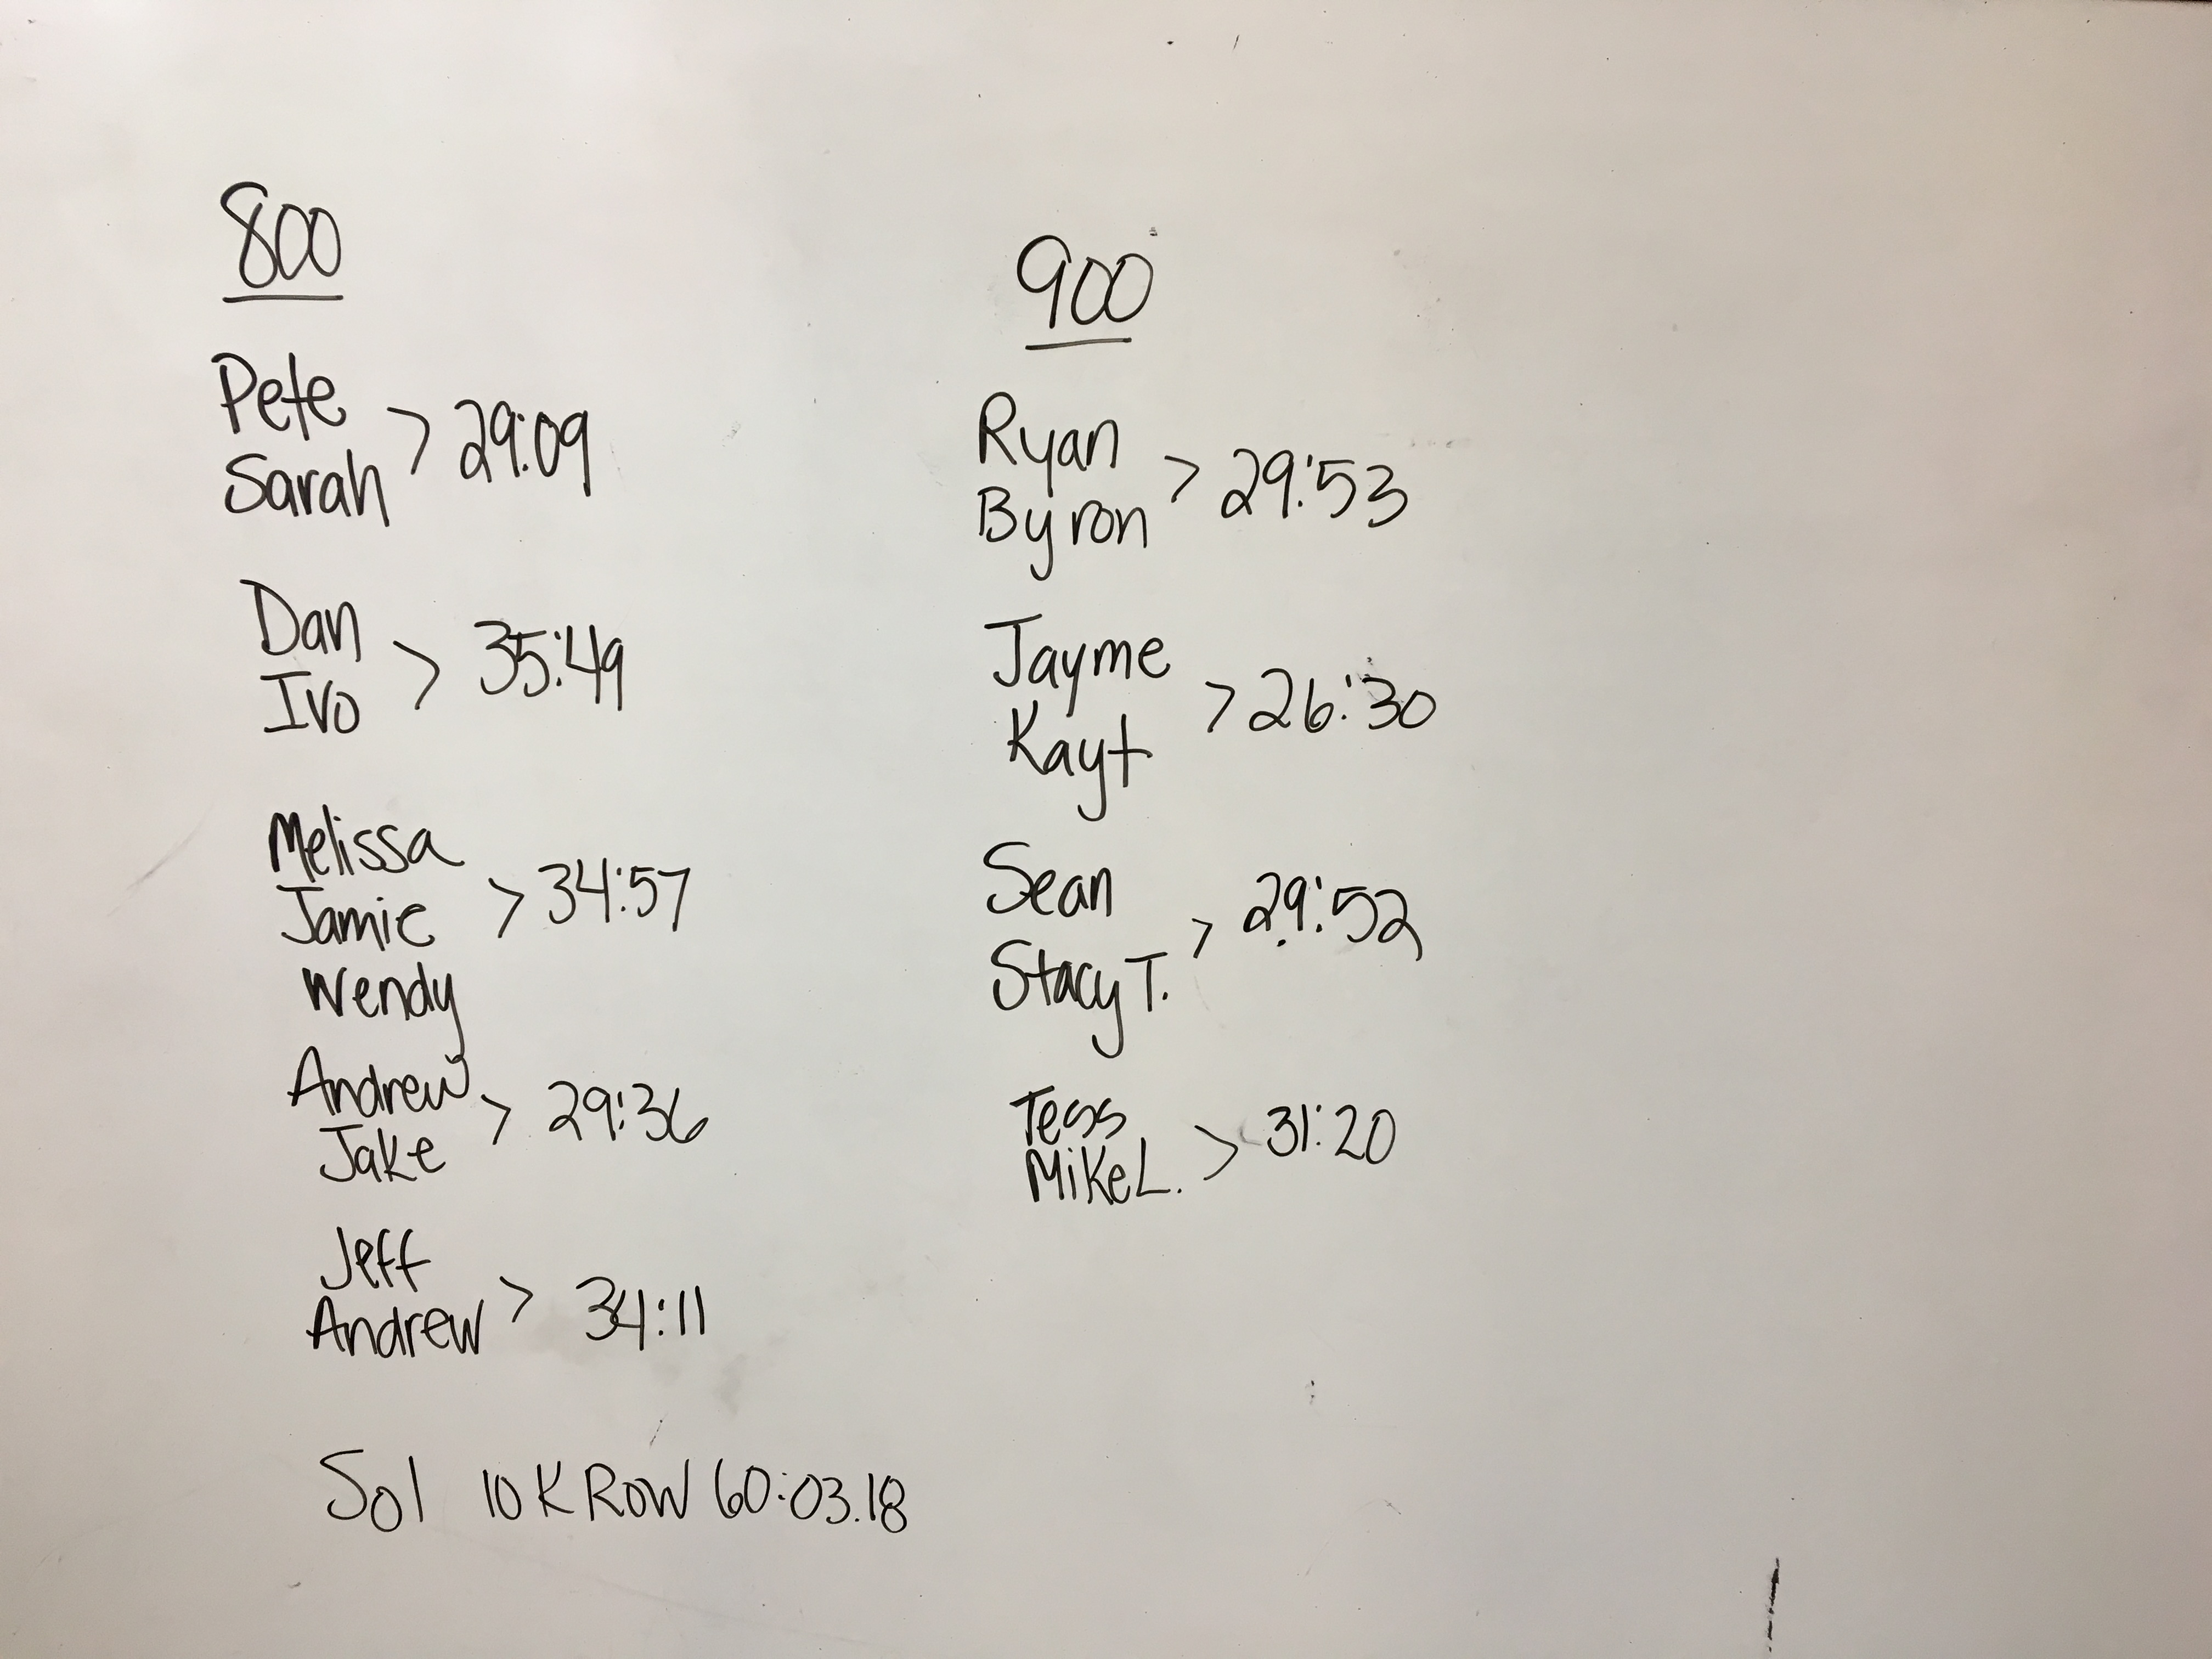 800
Pete
Sarah > 29:09
Dan
Ivo > 35:49
Melissa
Jamie > 34:57
Wendy
Andrew
Jake > 29:36
Jeff
Andrew > 34:11
Sol 10K ROW 60:03.18
900
Ryan
Byron > 29:53
Jayme
Kayt > 26:30
Sean
Stacy T. > 29:52
Tess
Mike L. > 31:20